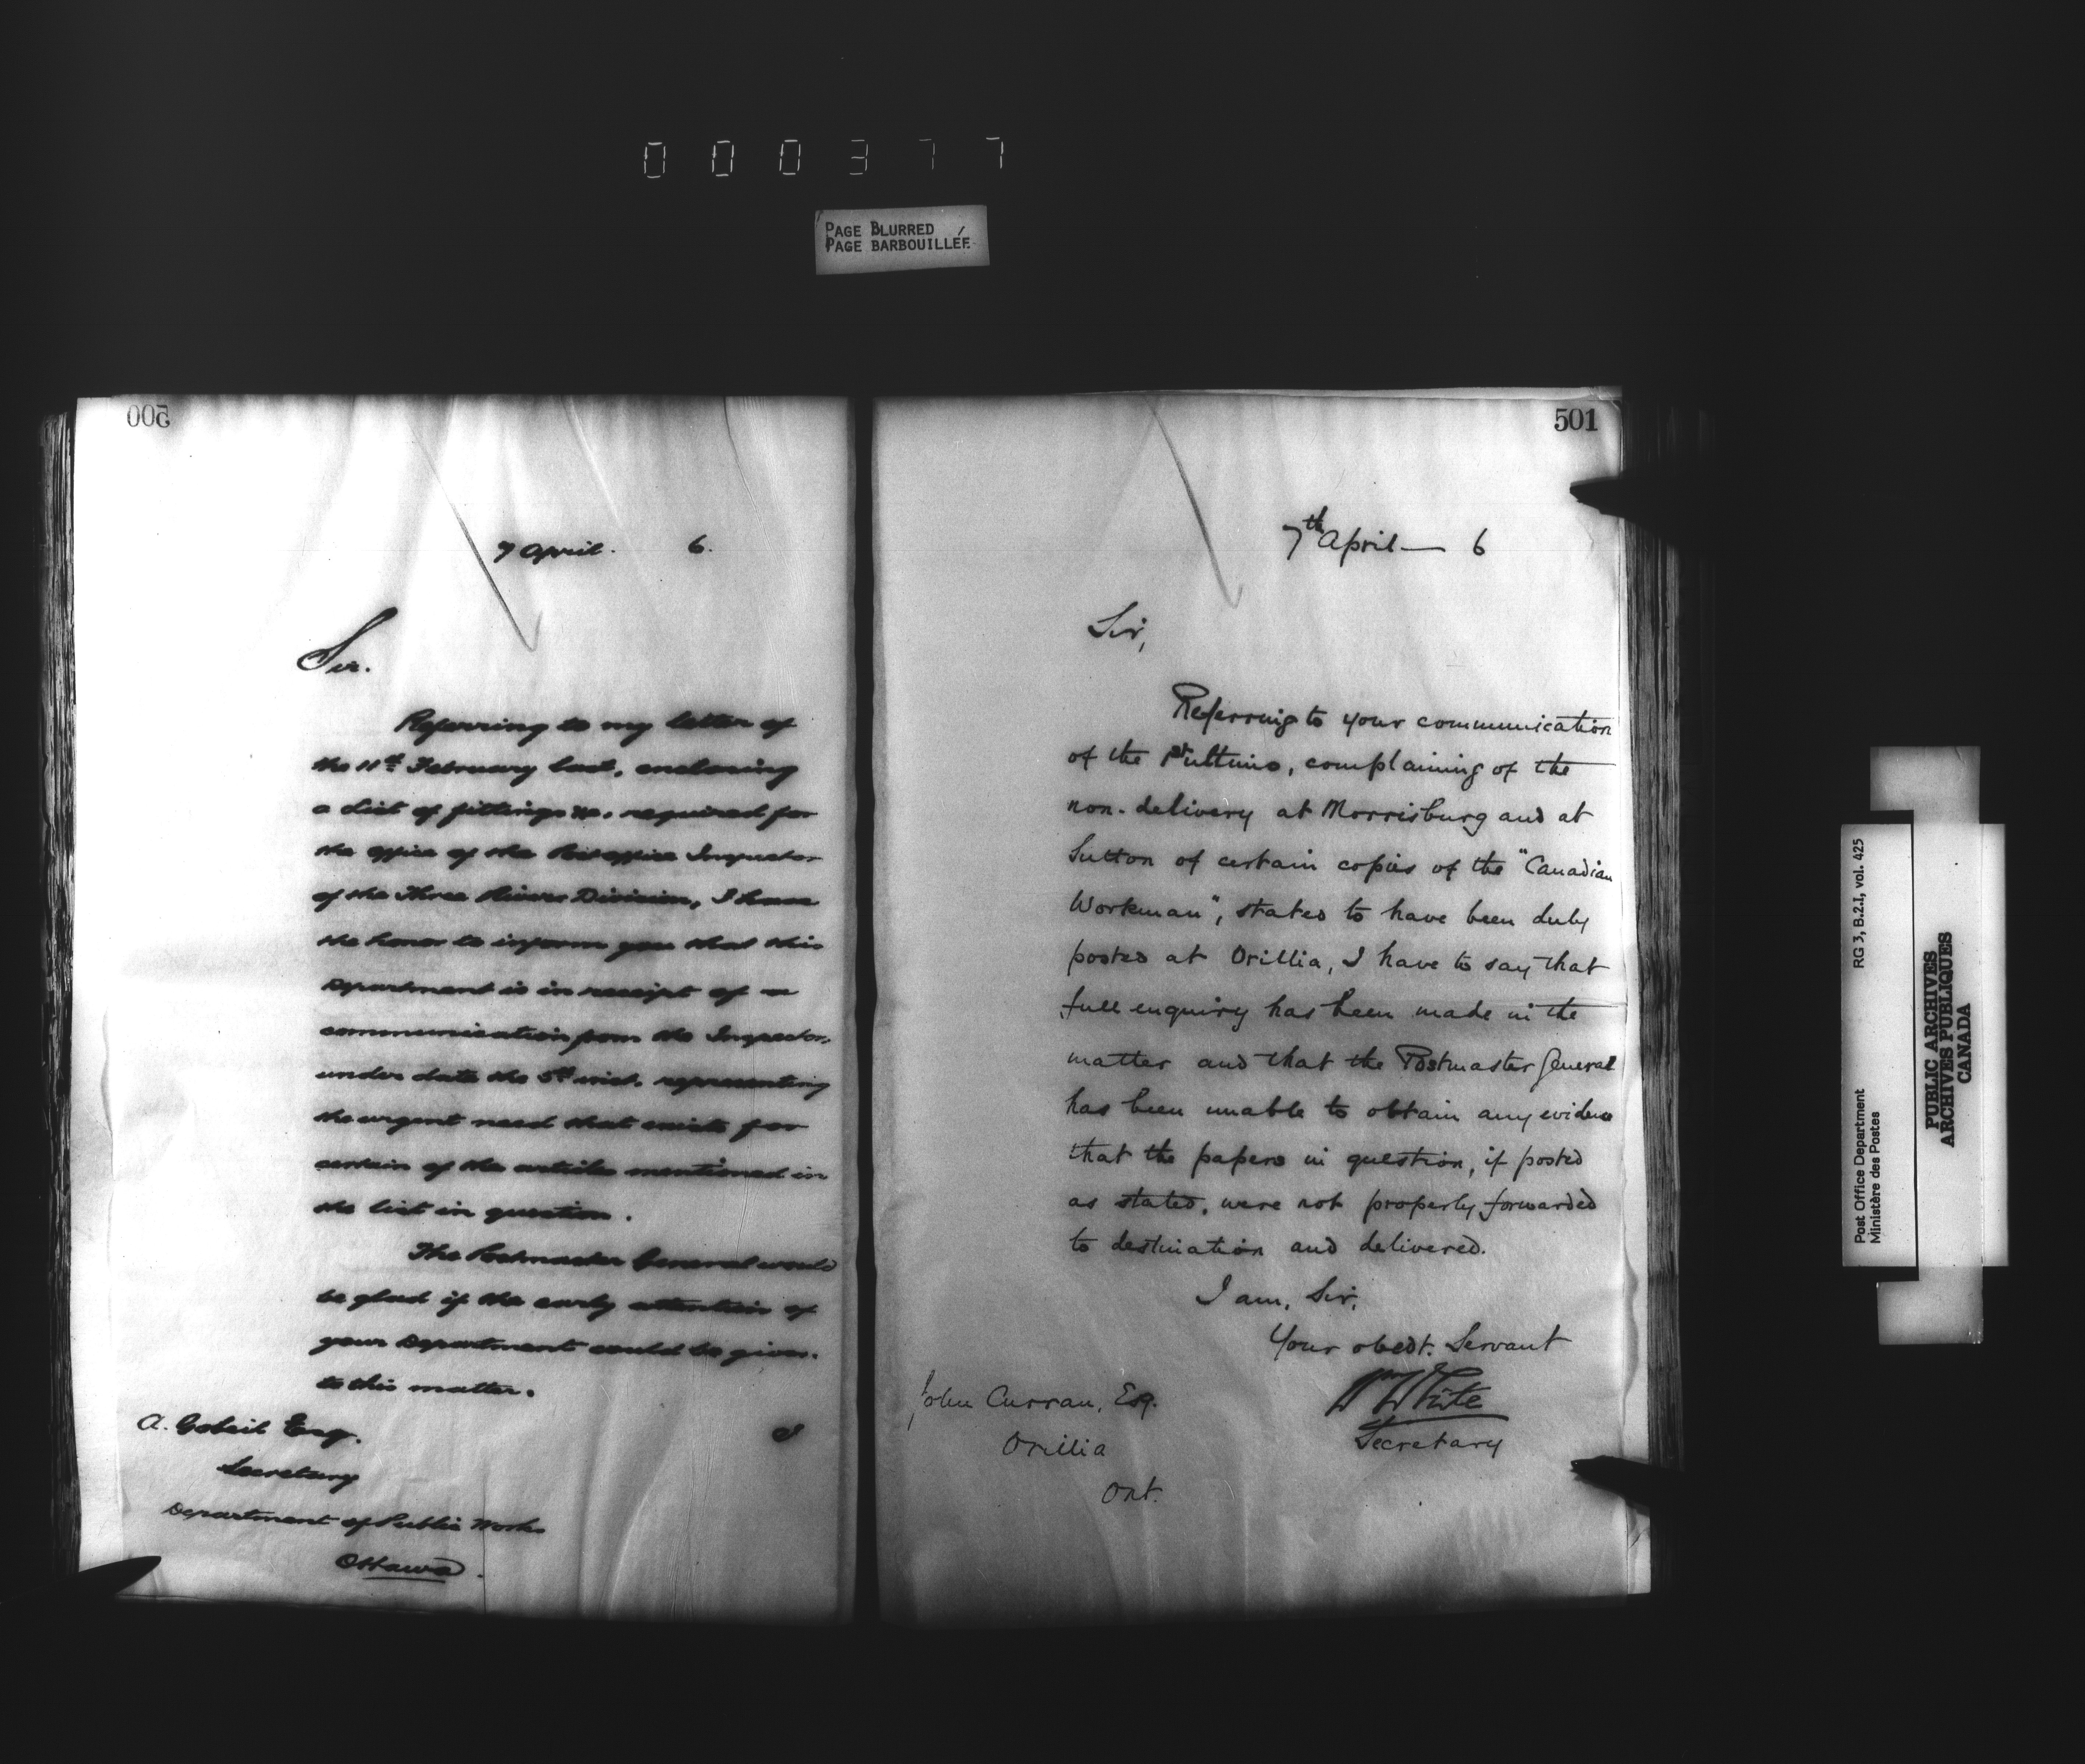 000377
PAGE BLURRED
PAGE BARBOUILLÉE
500
7 April. 6.
Sir.
Referring to my letter of
the 11th February last, enclosing
a list of fittings &c. required for
the office of the Post office Inspector
of the Three Rivers Division, I have
the honor to inform you that this
Department is in receipt of a
communication from the Inspector,
under date the 5th inst. representing
the urgent need that exists for
certain of the articles mentioned in
the list in question.
The Postmaster General would
be glad if the early attention of
your Department could be given
to this matter.
A. Gobeil Esq.
Secretary
Department of Public Works
Ottawa.
501
7th April — 6
Sir,
Referring to your communication
of the 1st ultimo, complaining of the
non-delivery at Morrisburg and at
Sutton of certain copies of the "Canadian
Workman", stated to have been duly
posted at Orillia, I have to say that
full enquiry has been made in the
matter and that the Postmaster General
has been unable to obtain any evidence
that the papers in question, if posted
as stated, were not properly forwarded
to destination and delivered.
I am, Sir,
Your obedt. Servant
Wm White
Secretary
John Curran, Esq.
Orillia
Ont.
Post Office Department RG 3, B.2.I, vol. 425
Ministère des Postes
PUBLIC ARCHIVES
ARCHIVES PUBLIQUES
CANADA